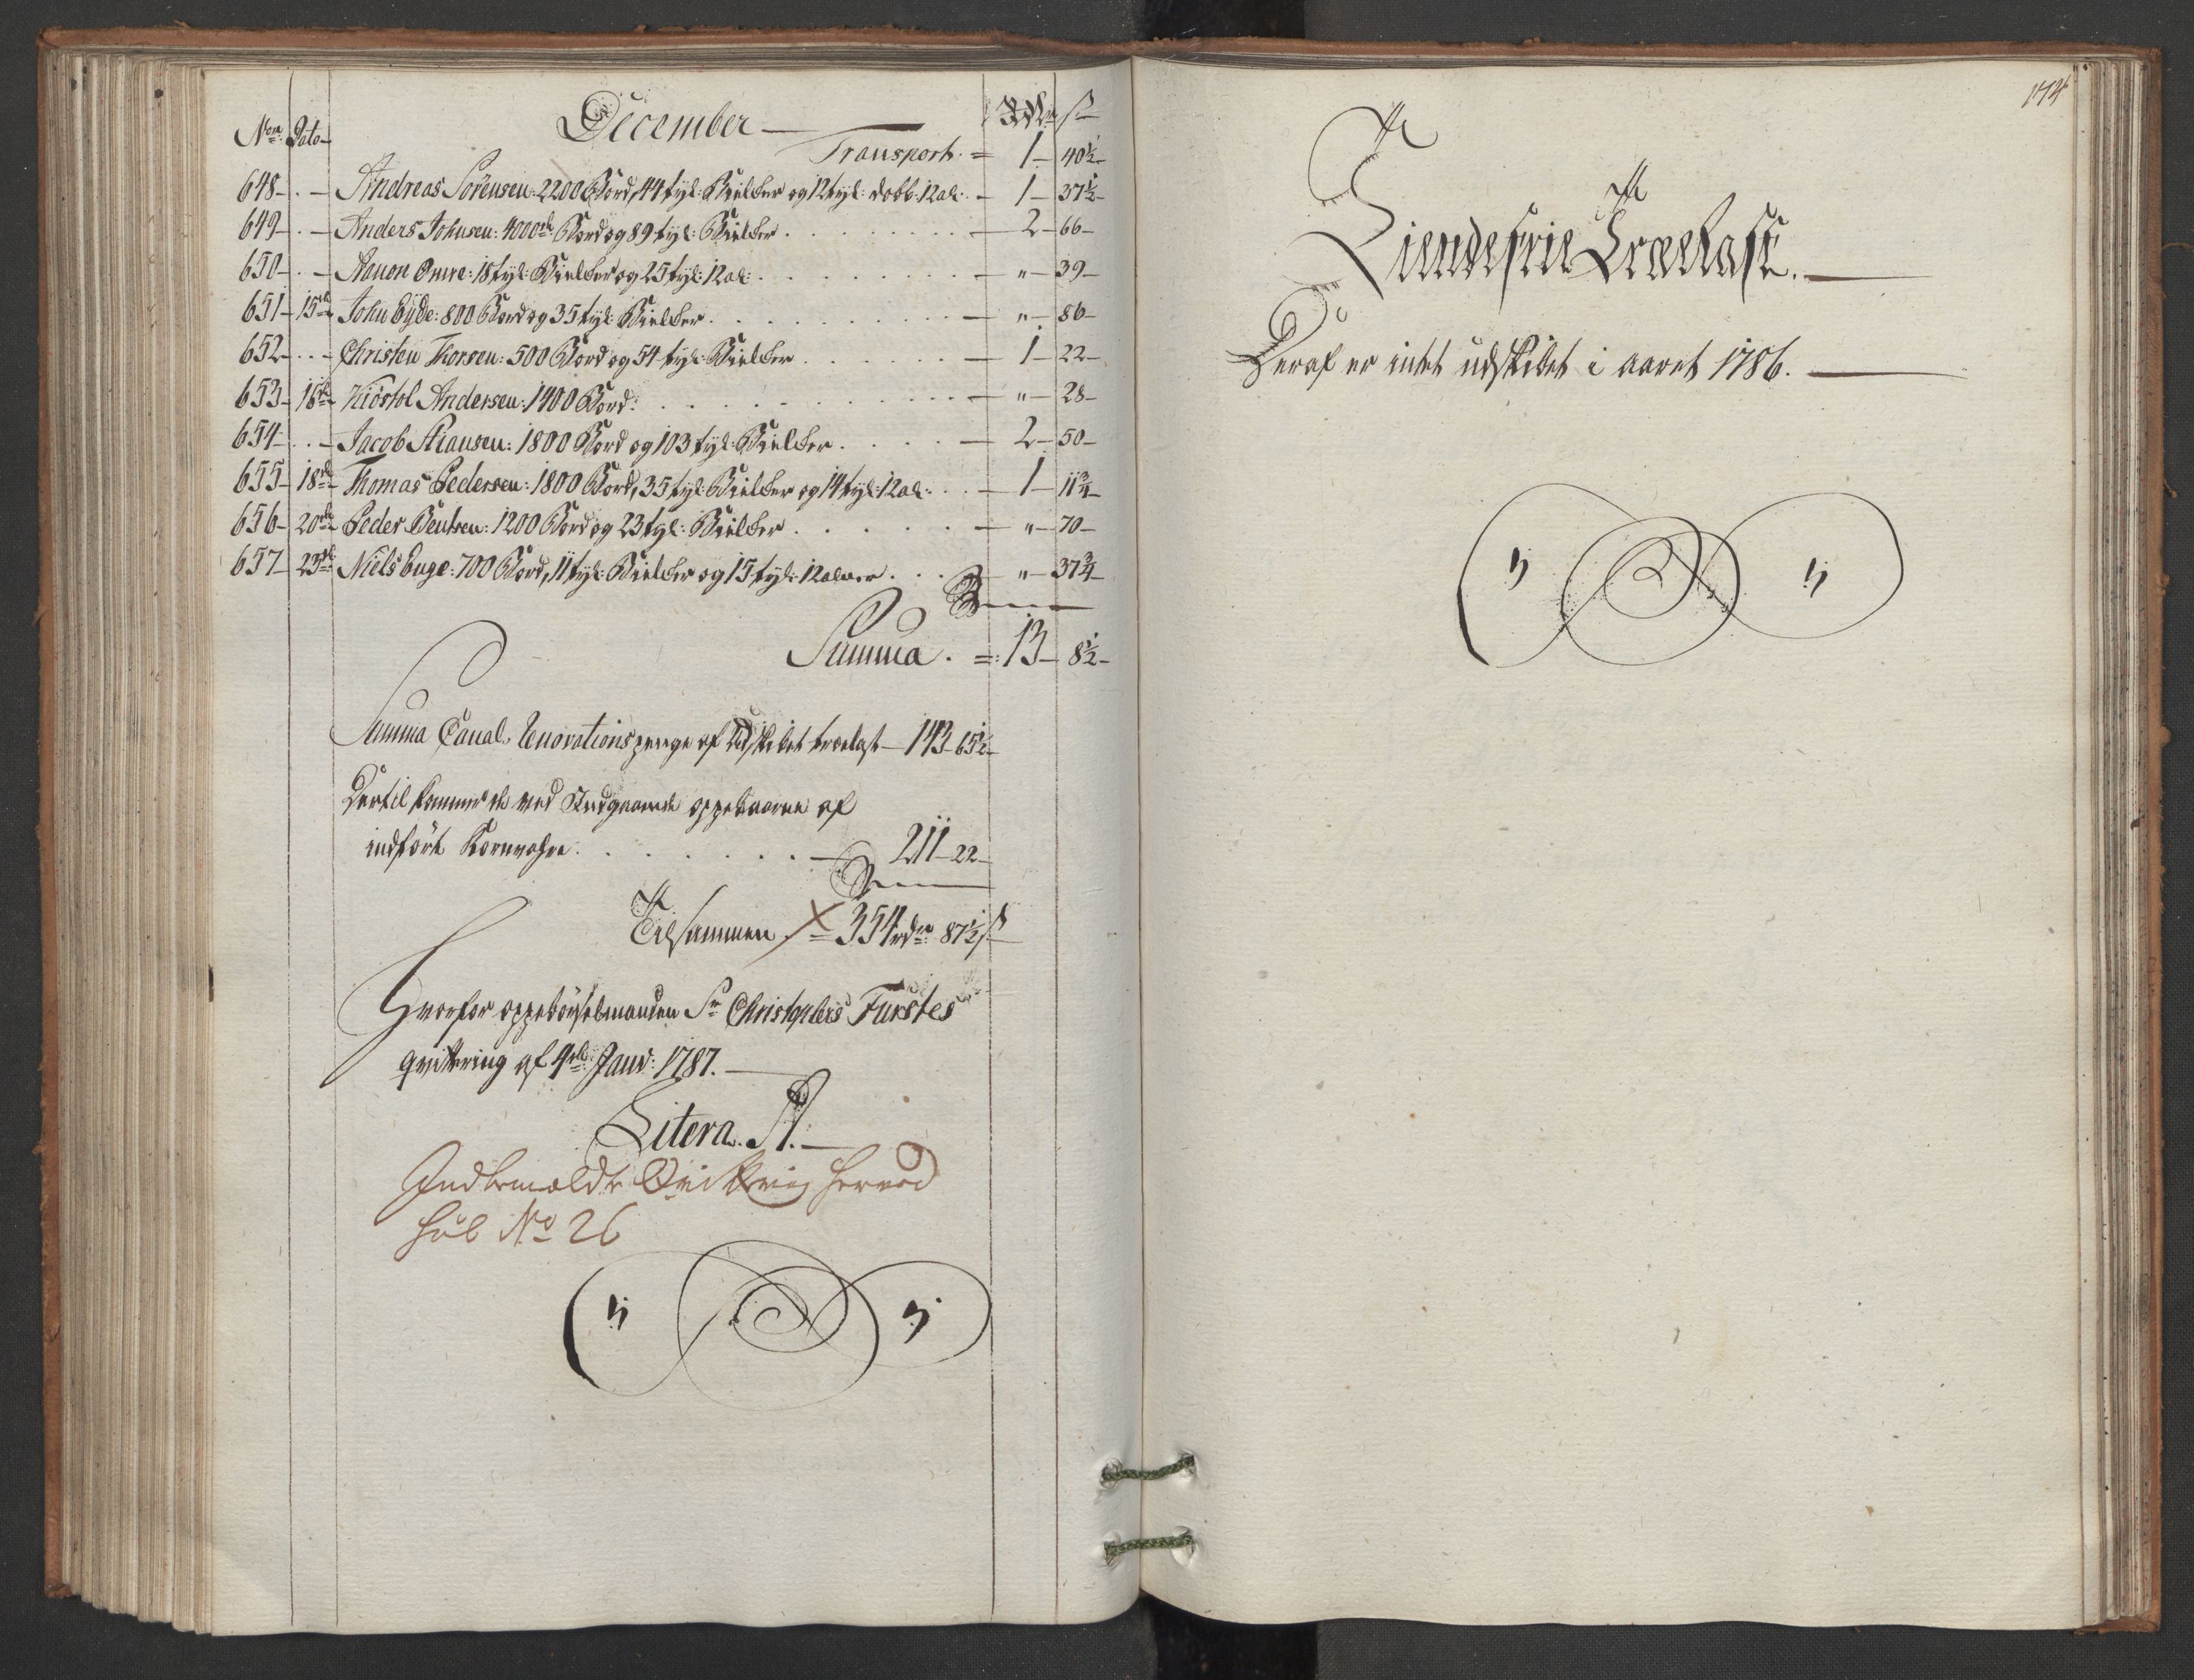 December
Nom Dato Rdr s
Transport = 1 - 40½
648 - . - Andreas Sørensen: 2200 Bord, 44 tyl: Bielcker og 12 tyl: dobb: 12 al: - 1 - 37½
649 - . - Anders Johnsen: 4000de Bord og 89 tyl: Bielcker . . . - 2 - 66
650 - . - Aanon Omre: 18 tyl: Bielcker og 25 tyl: 12 al: . . . - " - 39
651 - 15de John Eyde: 800 Bord og 35 tyl: Bielcker . . . - " - 86
652 - . - Christen Thorsen: 500 Bord og 54 tyl: Bielcker . . . - 1 - 22
653 - 16de Kiöstol Andersen: 1400 Bord: . . . - " - 28
654 - . - Jacob Stiansen: 1800 Bord og 103 tyl: Bielcker . . . - 2 - 50
655 - 18de Thomas Pedersen: 1800 Bord, 35 tyl: Bielcker og 14 tyl: 12 al: . . - 1 - 11¾
656 - 20de Peder Bentsen: 1200 Bord og 23 tyl: Bielcker . . . - " - 70
657 - 23de Niels Enge: 700 Bord, 11 tyl: Bielcker og 15 tyl: 12 alner . . - " - 37¾
Summa . = 13 - 8½
Summa Canal Renovations penge af Udskibet trælast - 143 - 65½
Dertil kommer de ved Indgaaende oppebaarne af
indført Kornvahre . . . - 211 - 22
Tilsammen = 354 rdr 87½ s
Hvorfor oppebørselsmanden Sr Christophers Fürstes
qvittering af 4de Janv: 1787.
Litera A.
Indbemældte Qvittering herved
sub No 26
174
Tiendefrie Trælast.
Deraf er intet udskibet i aaret 1786.